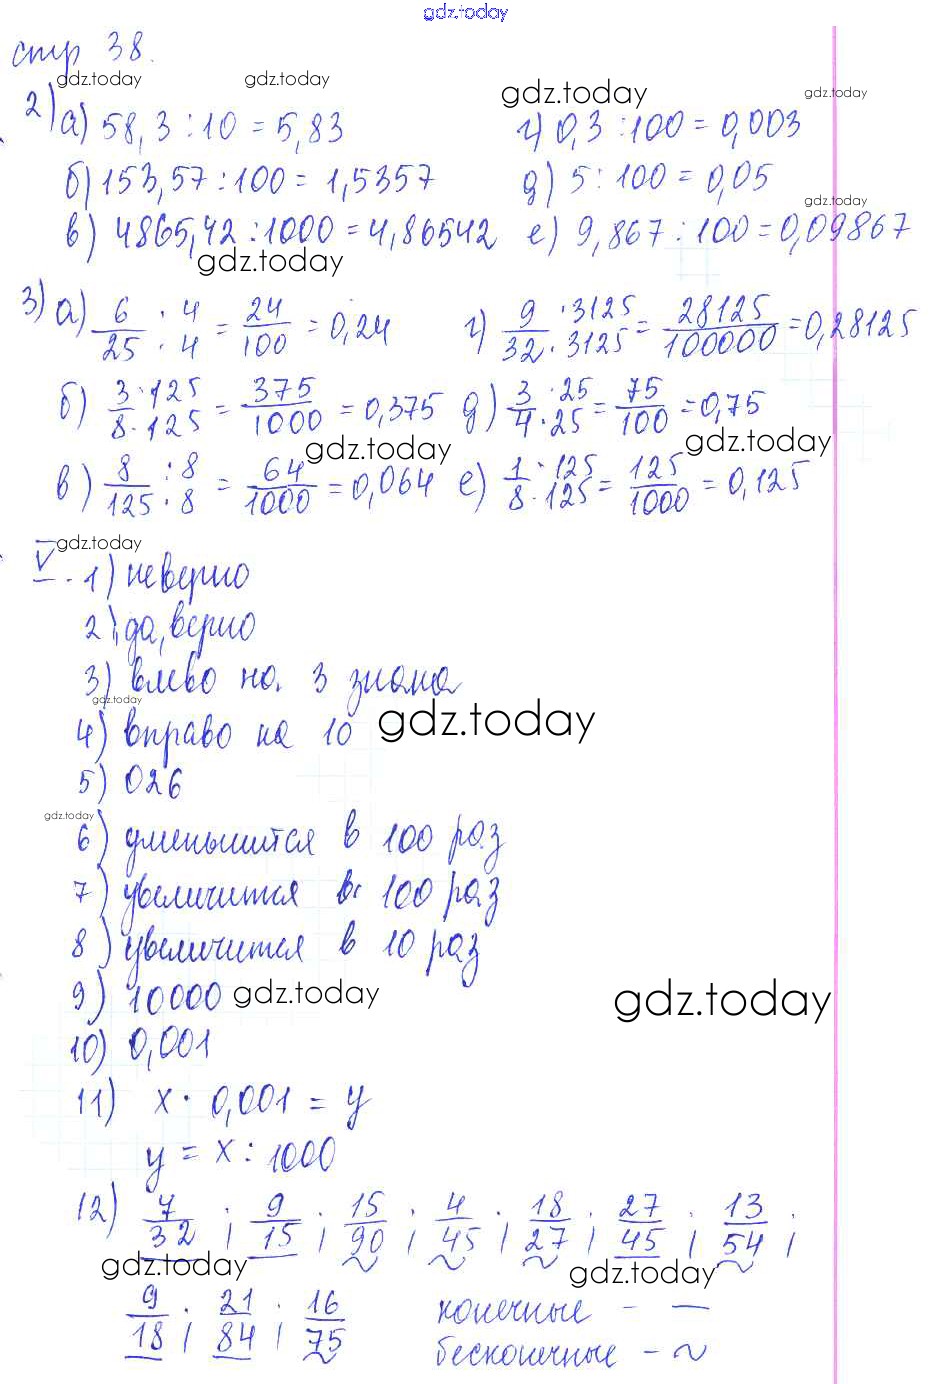 gdz.today
стр 38.
gdz.today gdz.today gdz.today gdz.today
2) а) 58,3 : 10 = 5,83 г) 0,3 : 100 = 0,003
б) 153,57 : 100 = 1,5357 д) 5 : 100 = 0,05
gdz.today
в) 4865,42 : 1000 = 4,86542 е) 9,867 : 100 = 0,09867
gdz.today
3) а) 6/25 · 4/4 = 24/100 = 0,24 г) 9/32 · 3125/3125 = 28125/100000 = 0,28125
б) 3/8 · 125/125 = 375/1000 = 0,375 д) 3/4 · 25/25 = 75/100 = 0,75
gdz.today gdz.today
в) 8/125 : 8/8 = 64/1000 = 0,064 е) 1/8 · 125/125 = 125/1000 = 0,125
gdz.today
V. 1) неверно
2) да, верно
3) влево на 3 знака
gdz.today
4) вправо на 10 gdz.today
5) 026
gdz.today
6) уменьшится в 100 раз
7) увеличится в 100 раз
8) увеличится в 10 раз
9) 10000 gdz.today gdz.today
10) 0,001
11) x · 0,001 = y
y = x : 1000
12) 7/32 ; 9/15 ; 15/90 ; 4/45 ; 18/27 ; 27/45 ; 13/54 ;
gdz.today gdz.today
9/18 ; 21/84 ; 16/75 конечные - —
бесконечные - ~